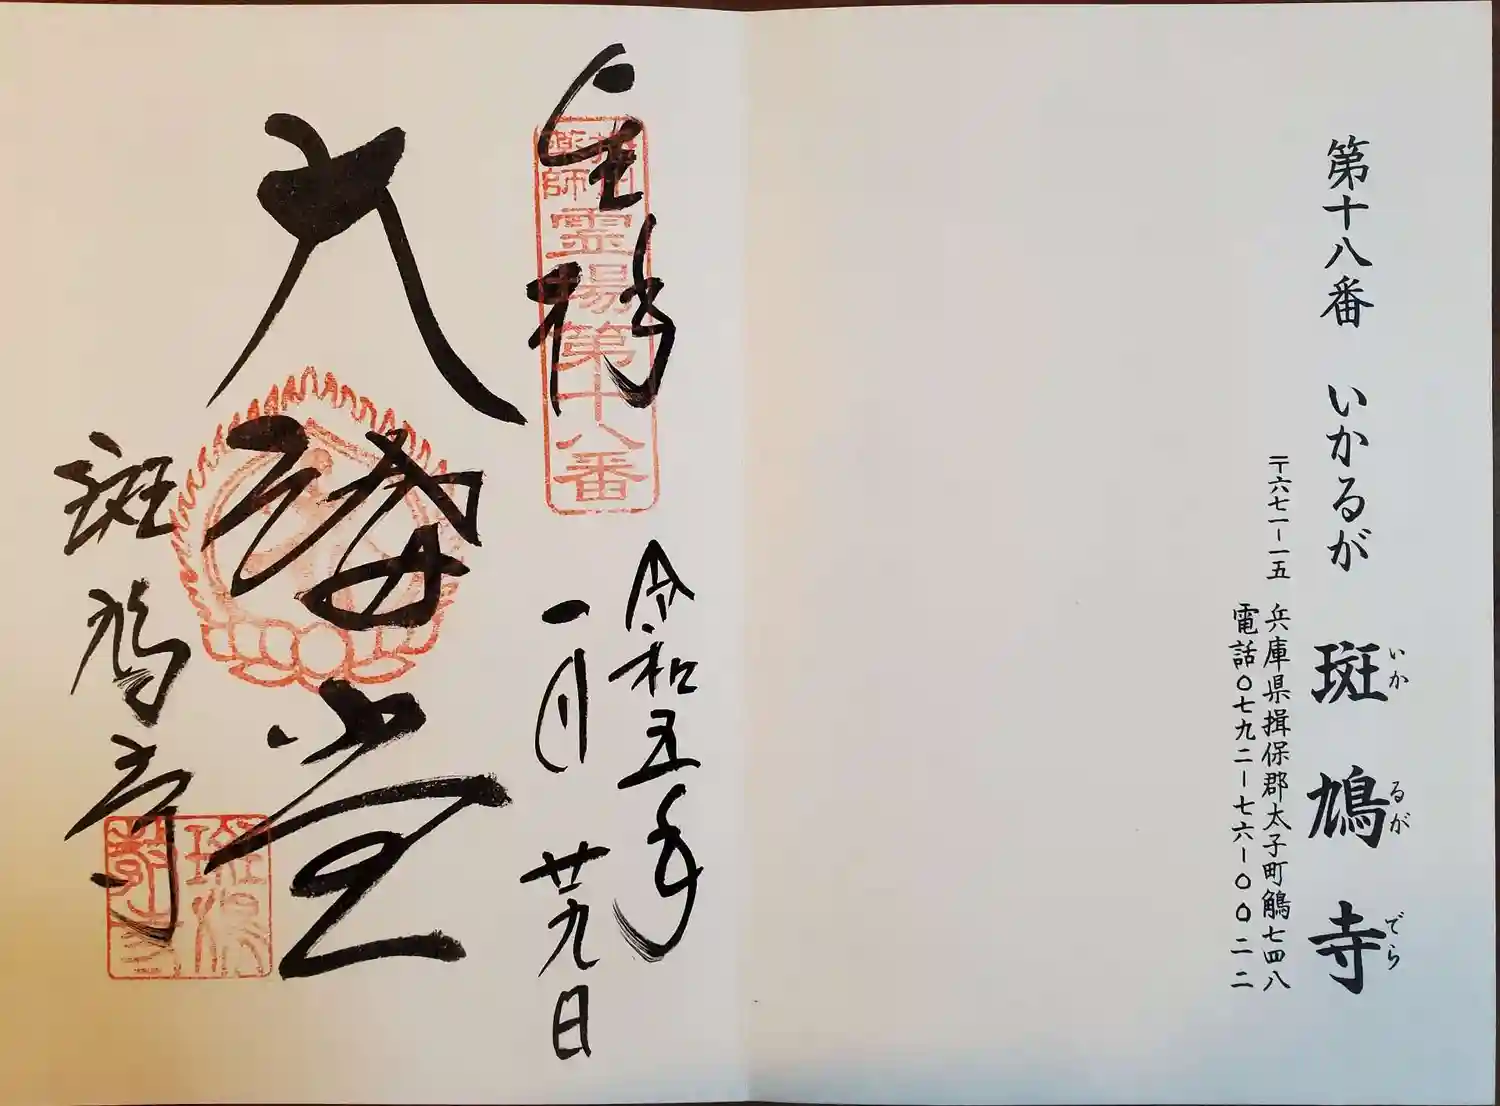 第十八番 いかるが 斑鳩寺
いかるがでら
〒六七一-一五 兵庫県揖保郡太子町鵤七四八
電話〇七九二-七六-〇〇二二
播州薬師霊場第十八番
令和五年
一月廿九日
大講堂
斑鳩寺